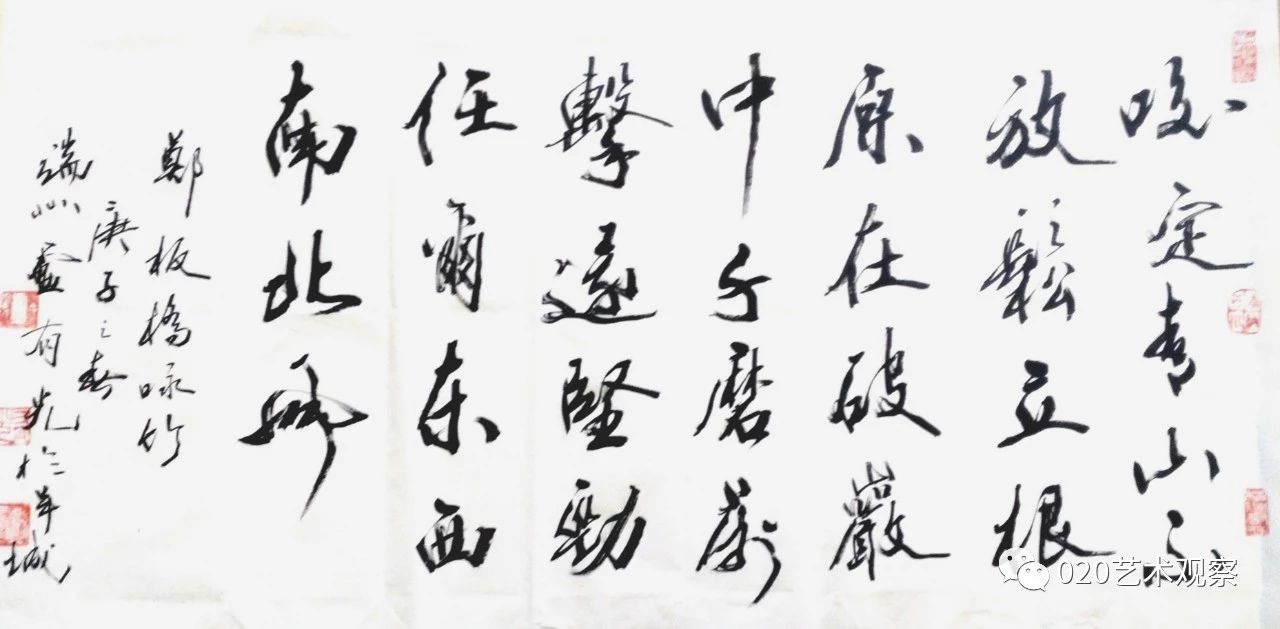 咬定青山不
放鬆立根
原在破巖
中千磨萬
擊還堅勁
任爾东西
南北風
鄭板橋咏竹
庚子之春
端州盧有光於羊城
020艺术观察